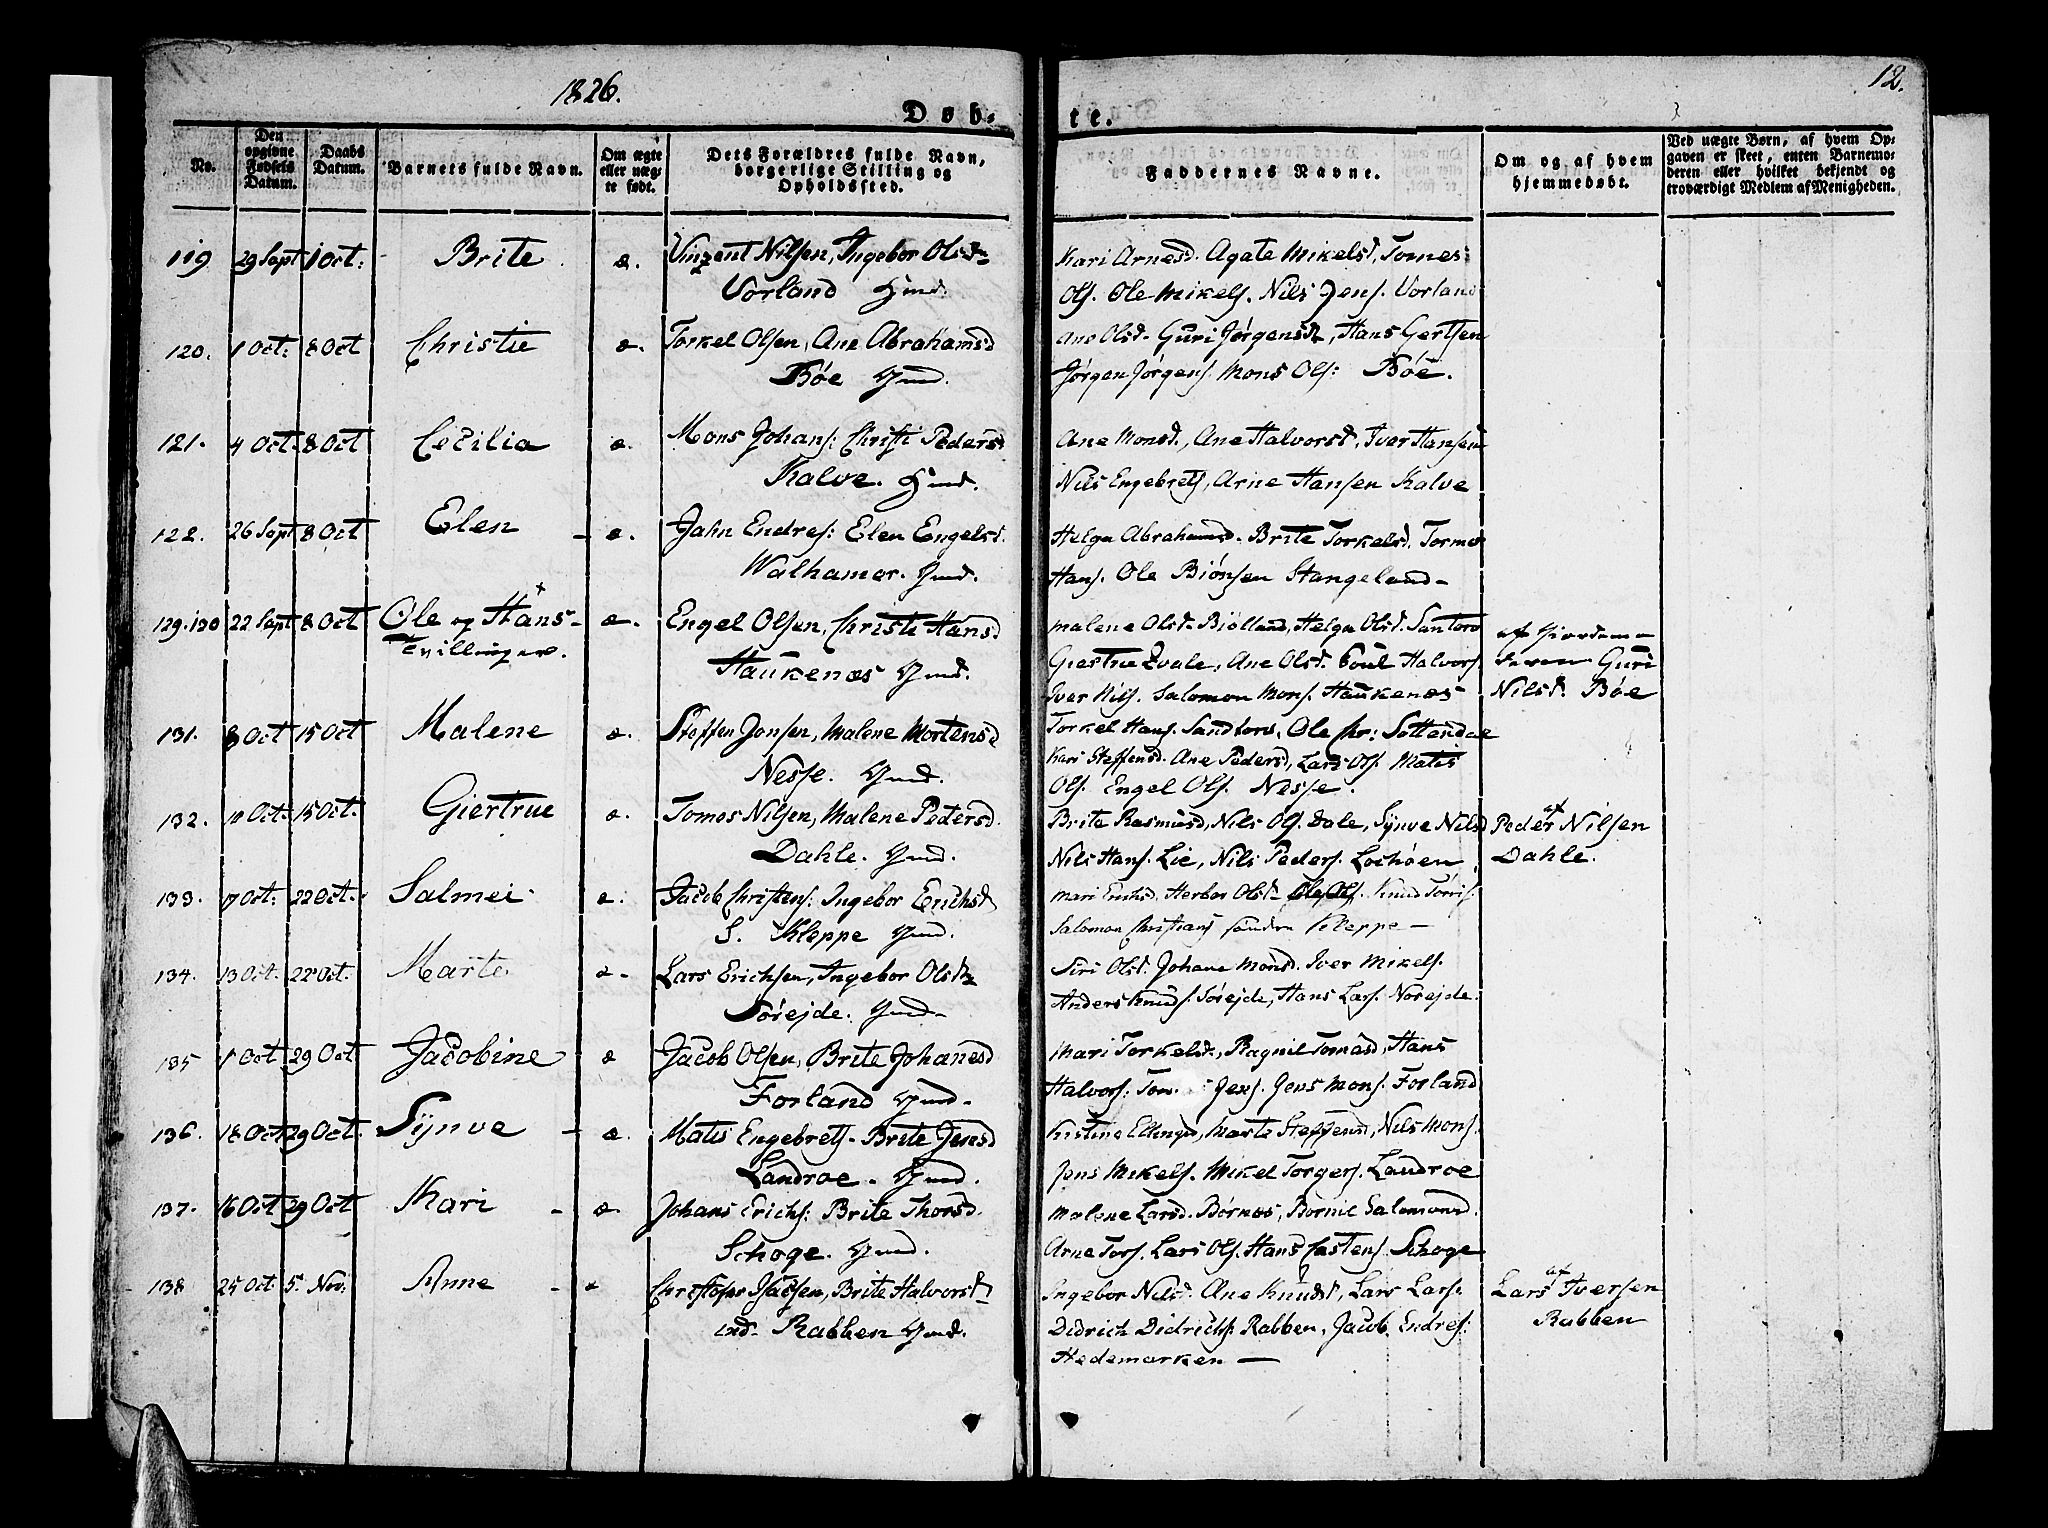 1826.
12.
Døb-
te.
No.
Den opgivne Fødsels Datum.
Daabs Datum.
Barnets fulde Navn.
Om ægte eller uægte født.
Dets Forældres fulde Navn, borgerlige Stilling og Opholdssted.
Faddernes Navne.
Om og af hvem hjemmedøbt.
Ved uægte Børn, af hvem Opgaven er skeet, enten Barnemoderen eller hvilket bekjendt og troværdigt Medlem af Menigheden.
119 29 Sept 1 Oct: Brite æ. Vinzent Nilsen, Ingebor Olsd. Kari Arnesd. Agate Mikelsd, Tomes
Vorland Gmd. Ols. Ole Mikels. Nils Jens. Vorland
120. 1 Oct: 8 Oct Christie æ. Torkel Olsen, Ane Abrahamsd Ane Olsd. Guri Jørgensd, Hans Gertsen
Bøe Gmd. Jørgen Jørgens. Mons Ols: Bøe.
121. 4 Oct. 8 Oct Cecilia æ. Mons Johans: Christi Peders Ane Monsd., Ane Halvorsd, Iver Hansen
Kalve. Gmd. Nils Engebrets, Arne Hansen Kalve
122. 26 Sept 8 Oct Elen æ. Jahn Endres: Elen Engelsd. Helga Abrahamsd. Brite Torkelsd. Tormo
Walhamer. Gmd. Hans. Ole Biönsen Stangeland
129.130 22 Sept 8 Oct Ole og Hans æ. Engel Olsen, Christi Hansd Malene Olsd. Biolland, Helga Olsd. Santorv af
Tvillinger. Haukenæs Gmd. Giertrue Zvale, Ane Olsd. Poul Halvors. Guri
Iver Nils. Salomon Mons. Haukenæs Nilsd. Bøe
131. 8 Oct 15 Oct Malene æ. Steffen Jonsen, Malene Mortensd Torkel Hans. Sandtorv, Ole Chr:
Nesse. Gmd. Kari Steffensd. Ane Pedersd, Lars Ols. Matis
Ols. Engel Ols. Nesse.
132. 10 Oct: 15 Oct: Giertrue æ. Tomos Nilsen, Malene Pedersd. Brite Rasmusd, Nils Ols. Dale, Synve Nilsd af Peder Nilsen
Dahle. Gmd. Nils Hans. Lie, Nils Peders. Lochøen Dahle.
133. 17 Oct: 22 Oct. Salmei æ. Jacob Christens: Ingebor Erichsd Mari Erichsd. Herbor Olsd Ole Ols. Knud Torris.
S. Kleppe Gmd. Salomon Christians søndre Kleppe
134. 13 Oct. 22 Oct. Marte æ. Lars Erichsen, Ingebor Olsd Siri Olsd. Johane Monsd. Iver Mikels.
Sørejde. Gmd. Anders Knuds. Sørejde, Hans Lars. Norejde.
135 1 Oct 29 Oct. Jacobine æ Jacob Olsen, Brite Johanesd Mari Torkelsd., Ragnil Tomasd, Hans
Forland Gmd. Halvors: Jens. Jens Mons. Forland
136. 18 Oct 29 Oct. Synve æ. Matis Engebrets. Brite Jensd Kistine Ellingsd, Marte Steffensd, Nils Mons.
Landroe. Gmd. Jens Mikels. Mikel Torgers. Landroe
137. 16 Oct 29 Oct Kari æ. Johans Erichs: Brite Thorsd. Malene Larsd. Børnæs, Bornil Salomonsd.
Schoge. Gmd. Arne Tors. Lars Ols. Hans Castens. Schoge
138 25 Oct. 5. Nov: Anne æ Christofer Isacsen, Brite Halvorsd Ingebor Nilsd. Ane Knudsd, Lars Lars. af Lars Iversen
ind. Rabben Gmd. Didrich Didrichs. Rabben. Jacob Endres: Rabben
Hedemarken